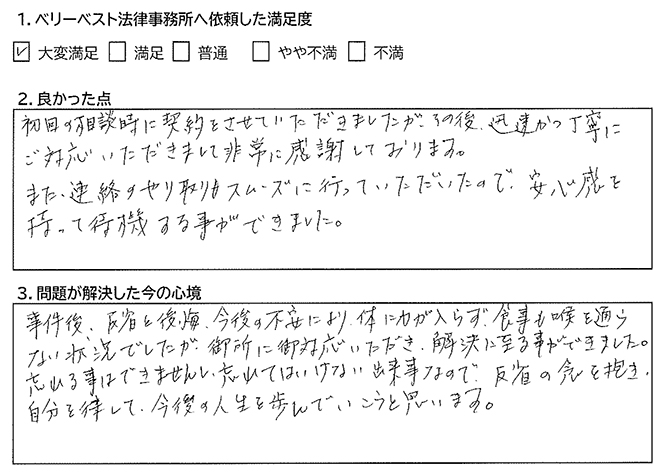 1. ベリーベスト法律事務所へ依頼した満足度
☑ 大変満足 □ 満足 □ 普通 □ やや不満 □ 不満
2. 良かった点
初回の相談時に契約をさせていただきましたが、その後、迅速かつ丁寧に
ご対応いただきまして非常に感謝しております。
また、連絡のやり取りもスムーズに行っていただいたので、安心感を
持って待機する事ができました。
3. 問題が解決した今の心境
事件後、反省と後悔、今後の不安により、体に力が入らず、食事も喉を通ら
ない状況でしたが、御所に御対応いただき、解決に至る事ができました。
忘れる事はできませんし、忘れてはいけない出来事なので、反省の念を抱き、
自分を律して、今後の人生を歩んでいこうと思います。